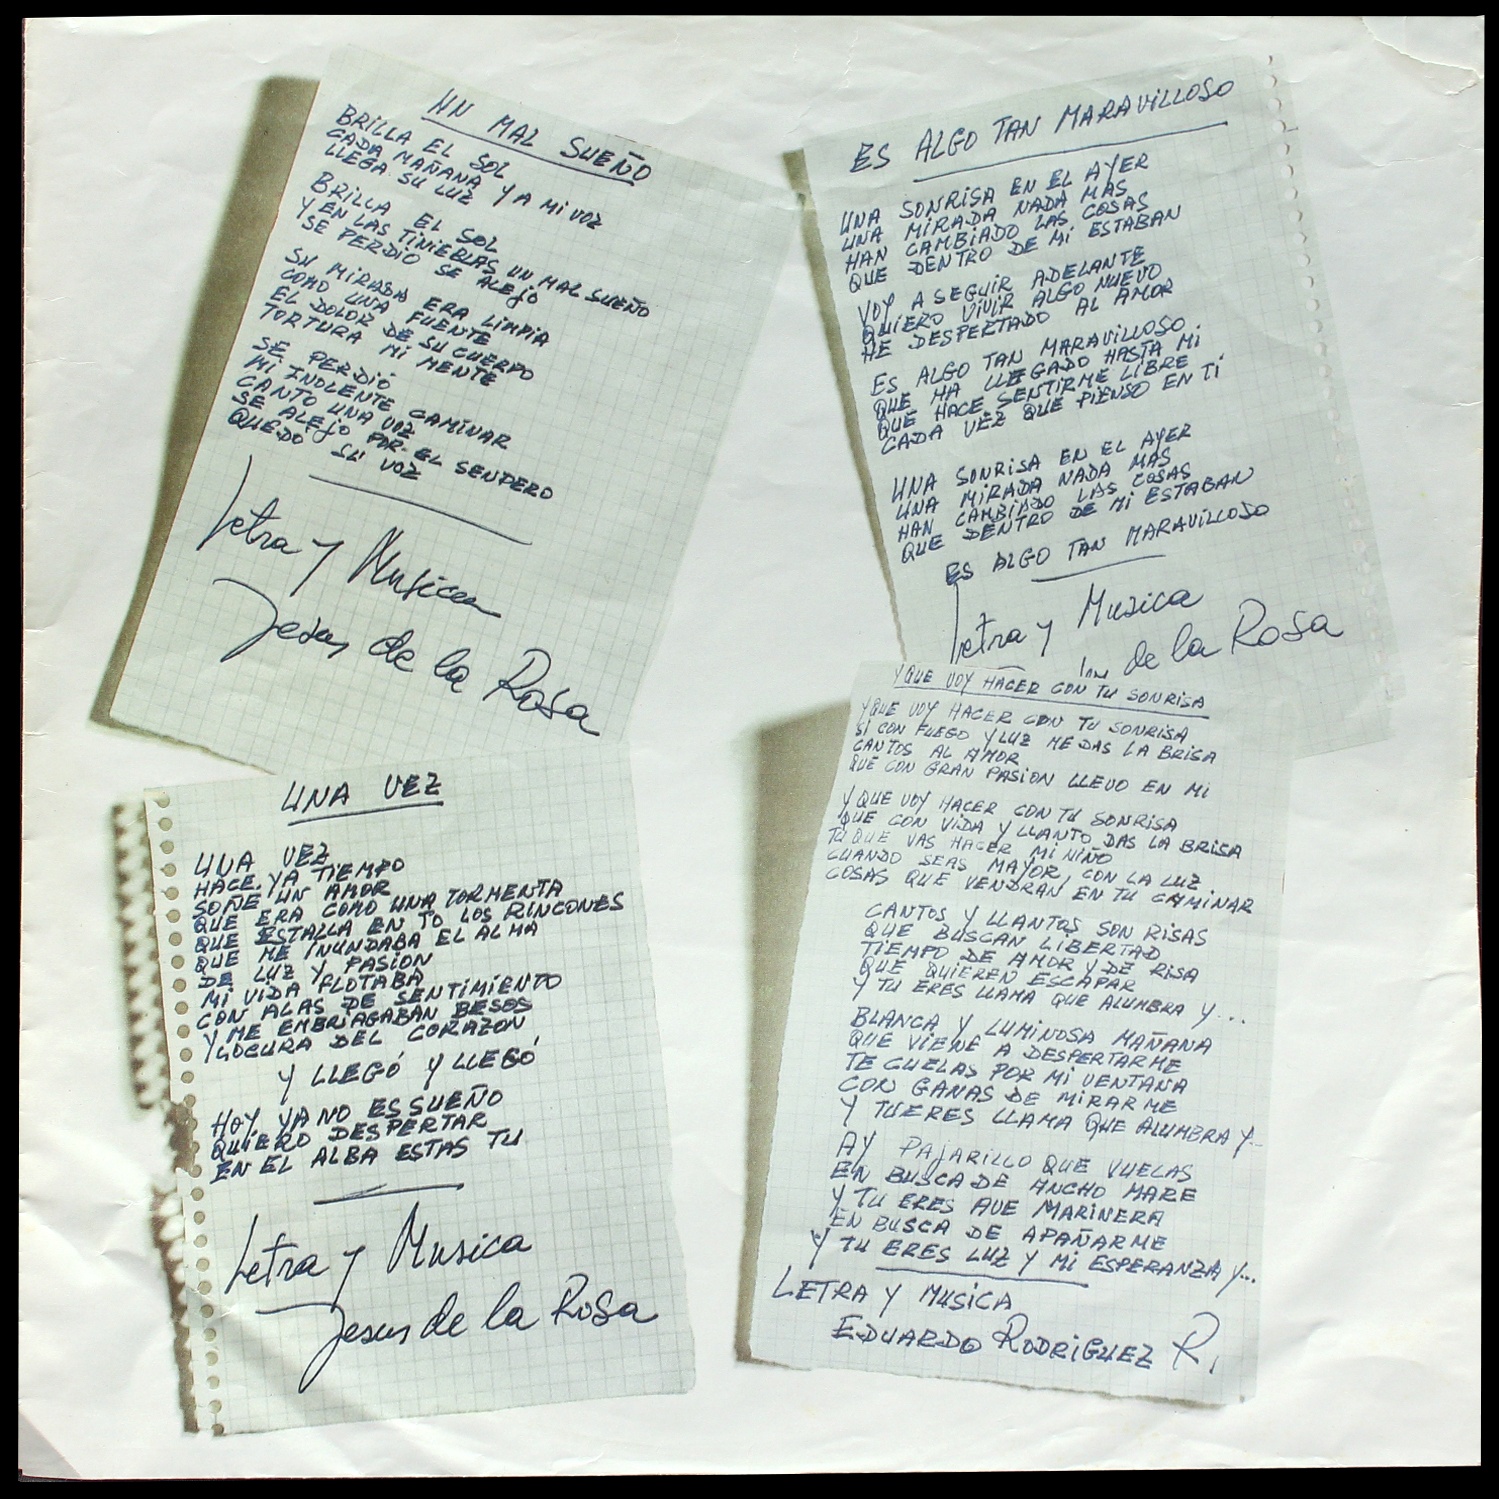 UN MAL SUEÑO
BRILLA EL SOL
CADA MAÑANA Y A MI VOZ
LLEGA SU LUZ
BRILLA EL SOL
Y EN LAS TINIEBLAS UN MAL SUEÑO
SE PERDIO SE ALEJO
SU MIRADA ERA LIMPIA
COMO UNA FUENTE
EL DOLOR DE SU CUERPO
TORTURA MI MENTE
SE PERDIÓ
MI INOCENTE CAMINAR
CANTO UNA VOZ
SE ALEJO POR EL SENDERO
QUEDO SU VOZ
Letra y Musica
Jesus de la Rosa
ES ALGO TAN MARAVILLOSO
UNA SONRISA EN EL AYER
UNA MIRADA NADA MAS
HAN CAMBIADO LAS COSAS
QUE DENTRO DE MI ESTABAN
VOY A SEGUIR ADELANTE
QUIERO VIVIR ALGO NUEVO
HE DESPERTADO AL AMOR
ES ALGO TAN MARAVILLOSO
QUE HA LLEGADO HASTA MI
QUE HACE SENTIRME LIBRE
CADA VEZ QUE PIENSO EN TI
UNA SONRISA EN EL AYER
UNA MIRADA NADA MAS
HAN CAMBIADO LAS COSAS
QUE DENTRO DE MI ESTABAN
ES ALGO TAN MARAVILLOSO
Letra y Musica
de la Rosa
UNA VEZ
UNA VEZ
HACE YA TIEMPO
SOÑE UN AMOR
QUE ERA COMO UNA TORMENTA
QUE ESTALLA EN TO LOS RINCONES
QUE ME INUNDABA EL ALMA
DE LUZ Y PASION
MI VIDA FLOTABA
CON ALAS DE SENTIMIENTO
Y ME EMBRIAGABAN BESOS
Y LOCURA DEL CORAZON
Y LLEGÓ Y LLEGÓ
HOY YA NO ES SUEÑO
QUIERO DESPERTAR
EN EL ALBA ESTAS TU
Letra y Musica
Jesus de la Rosa
Y QUE VOY HACER CON TU SONRISA
Y QUE VOY HACER CON TU SONRISA
SI CON FUEGO Y LUZ ME DAS LA BRISA
CANTOS AL AMOR
QUE CON GRAN PASION LLEVO EN MI
Y QUE VOY HACER CON TU SONRISA
QUE CON VIDA Y LLANTO DAS LA BRISA
TU QUE VAS HACER MI NIÑO
CUANDO SEAS MAYOR, CON LA LUZ
COSAS QUE VENDRAN, EN TU CAMINAR
CANTOS Y LLANTOS SON RISAS
QUE BUSCAN LIBERTAD
TIEMPO DE AMOR Y DE RISA
QUE QUIEREN ESCAPAR
Y TU ERES LLAMA QUE ALUMBRA Y...
BLANCA Y LUMINOSA MAÑANA
QUE VIENE A DESPERTARME
TE CUELAS POR MI VENTANA
CON GANAS DE MIRARME
Y TU ERES LLAMA QUE ALUMBRA Y...
AY PAJARILLO QUE VUELAS
EN BUSCA DE ANCHO MARE
Y TU ERES AVE MARINERA
EN BUSCA DE APAÑARME
Y TU ERES LUZ Y MI ESPERANZA Y...
LETRA Y MUSICA
EDUARDO RODRIGUEZ R.